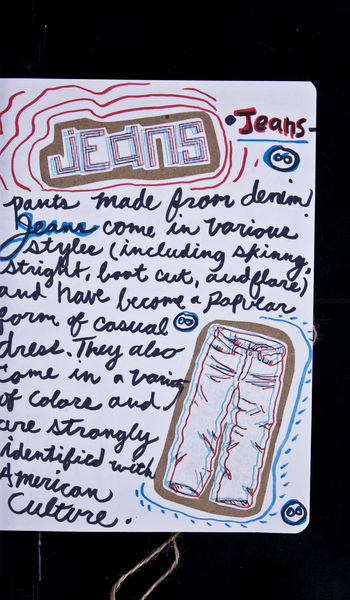 jeans
• Jeans -
pants made from denim!
Jeans come in various
styles (including skinny,
stright, boot cut, and flare)
and have become a popular
form of casual
dress. They also
come in a variety
of colors and
are strongly
identified with
American
Culture.